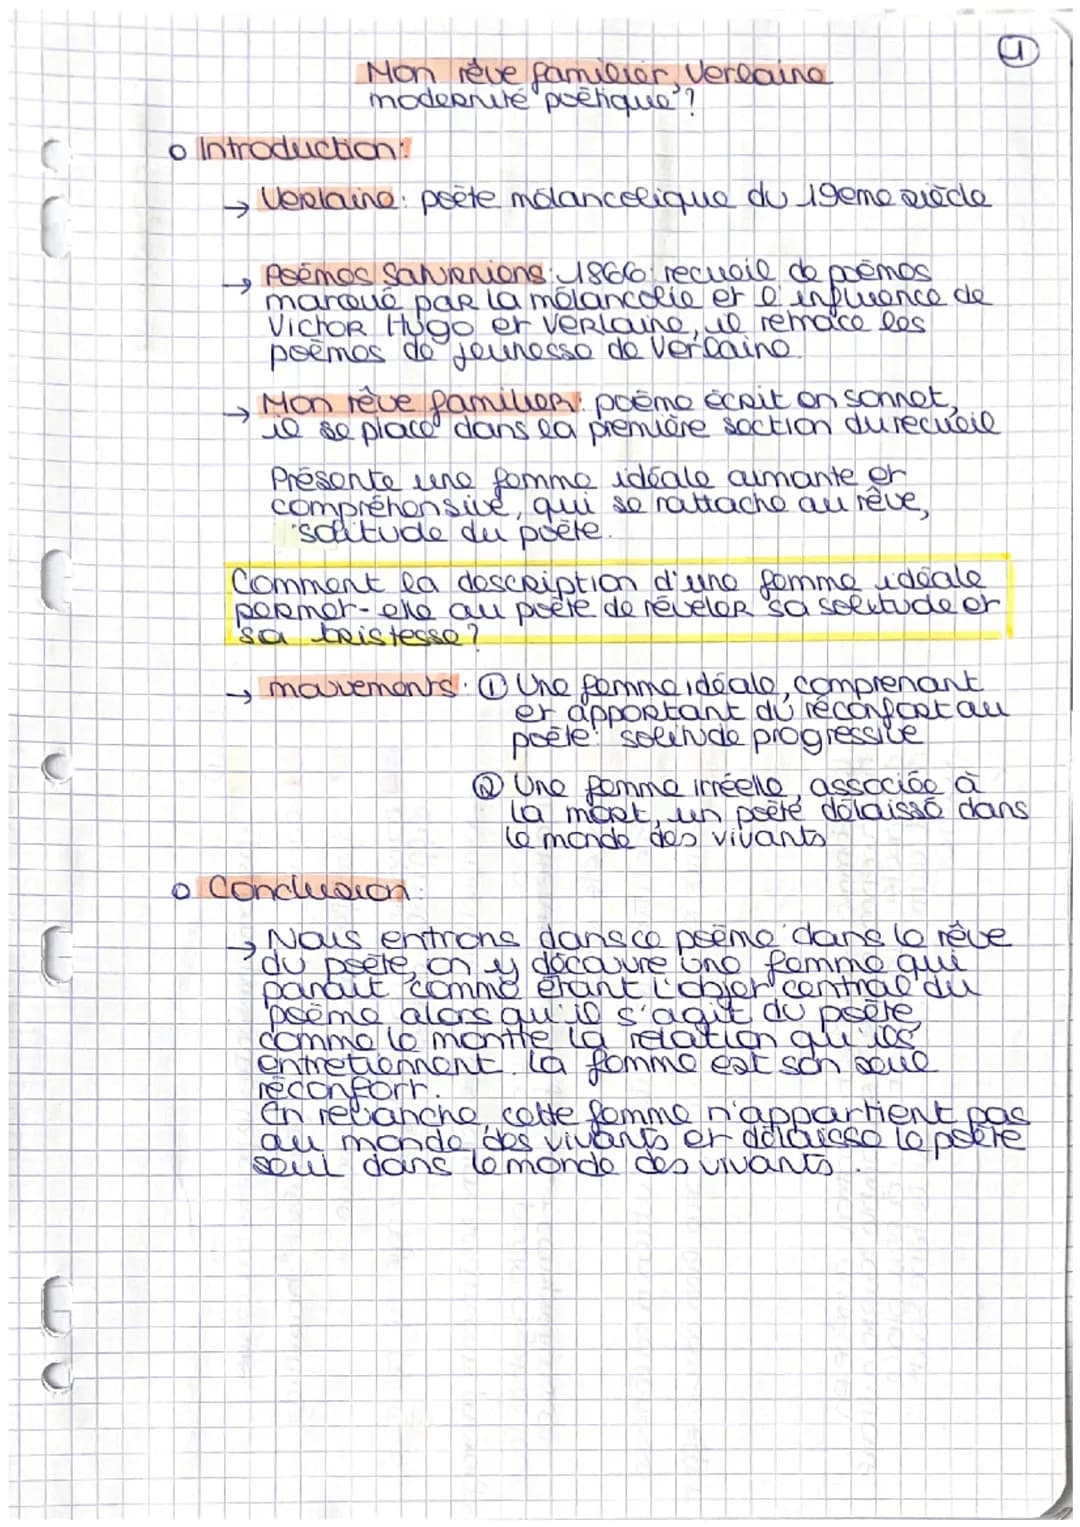 1
Mon rêve familier, Verlaine
modernité poétique ?
o Introduction:
→ Verlaine: poète mélancolique du 19eme siècle
→ Poèmes Saturniens: 1866: recueil de poèmes
marqué par la mélancolie et l'influence de
Victor Hugo et Verlaine, il retrace les
poèmes de jeunesse de Verlaine.
→ Mon rêve familier: poème écrit en sonnet,
il se place dans la première section du recueil
Présente une femme idéale aimante et
compréhensive, qui se rattache au rêve,
solitude du poète.
Comment la description d'une femme idéale
permet-elle au poète de révéler sa solitude et
sa tristesse ?
→ mouvements: ① Une femme idéale, comprenant
et apportant du réconfort au
poète: solitude progressive
② Une femme irréelle, associée à
la mort, un poète délaissé dans
le monde des vivants
o Conclusion:
→ Nous entrons dans ce poème dans le rêve
du poète, on y découvre une femme qui
parait comme étant l'objet central du
poème alors qu'il s'agit du poète,
comme le montre la relation qu'ils
entretiennent. La femme est son seul
réconfort.
En revanche, cette femme n'appartient pas
au monde des vivants et délaisse le poète
seul dans le monde des vivants.